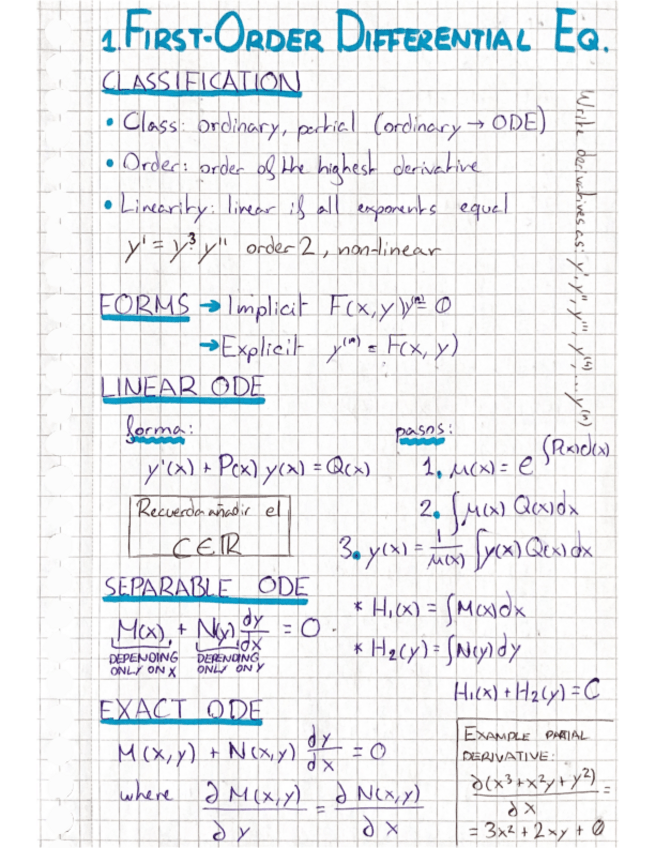 1. FIRST-ORDER DIFFERENTIAL EQ.
CLASSIFICATION
• Class: ordinary, partial (ordinary → ODE)
• Order: order of the highest derivative
• Linearity: linear if all exponents equal
y' = y³ y'' order 2, non-linear
Write derivatives as: y', y'', y''', y⁽⁴⁾, ... y⁽ⁿ⁾
FORMS → Implicit F(x,y)y⁽ⁿ⁾= 0
→ Explicit y⁽ⁿ⁾ = F(x, y)
LINEAR ODE
forma:
y'(x) + P(x) y(x) = Q(x)
Recuerda añadir el
C∈ℝ
pasos:
1. μ(x) = e^∫P(x)d(x)
2. ∫μ(x) Q(x)dx
3. y(x) = 1/μ(x) ∫y(x) Q(x)dx
SEPARABLE ODE
M(x) + N(y) dy/dx = 0
DEPENDING ONLY ON X
DEPENDING ONLY ON Y
* H₁(x) = ∫M(x)dx
* H₂(y) = ∫N(y)dy
H₁(x) + H₂(y) = C
EXACT ODE
M(x,y) + N(x,y) dy/dx = 0
where ∂M(x,y)/∂y = ∂N(x,y)/∂x
EXAMPLE PARTIAL
DERIVATIVE:
∂(x³+x²y+y²)/∂x =
= 3x² + 2xy + 0